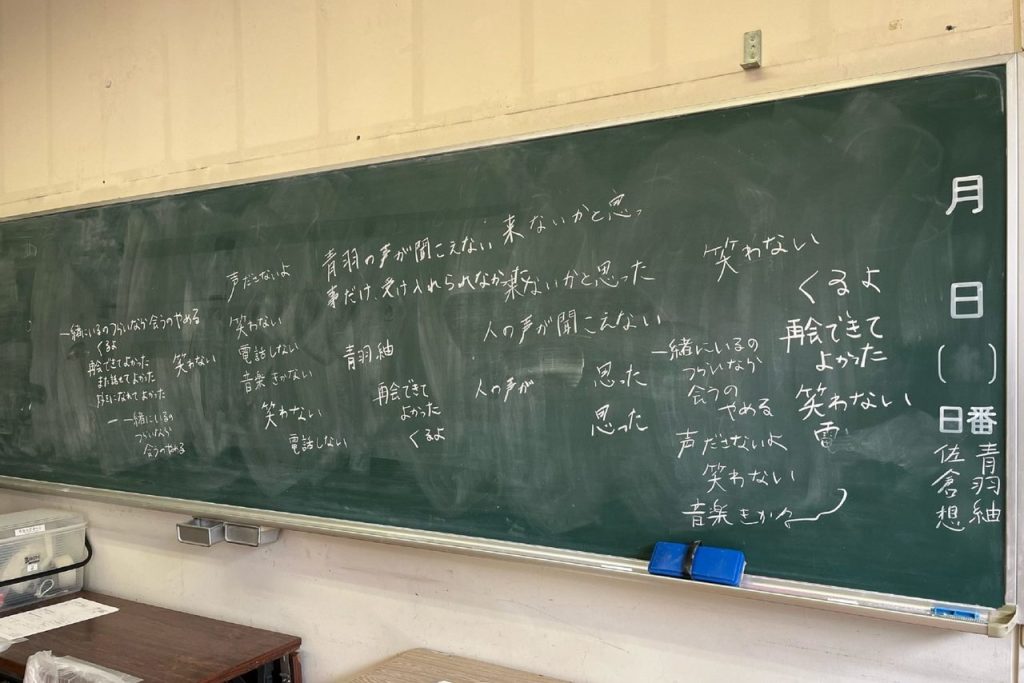 一緒にいるのつらいなら会うのやめる
くるよ
再会できてよかった
また話せてよかった
好きになれてよかった
一緒にいるの
つらいなら
会うのやめる
笑わない
声ださないよ
笑わない
電話しない
音楽きかない
笑わない
電話しない
青羽の声が聞こえない
事だけ、受け入れられなかった
青羽紬
再会できて
よかった
くるよ
来ないかと思っ
来ないかと思った
人の声が聞こえない
人の声が
思った
思った
笑わない
くるよ
再会できて
よかった
笑わない
電
一緒にいるの
つらいなら
会うの
やめる
声ださないよ
笑わない
音楽きか
月
日
( )
日番
青羽紬
佐倉想